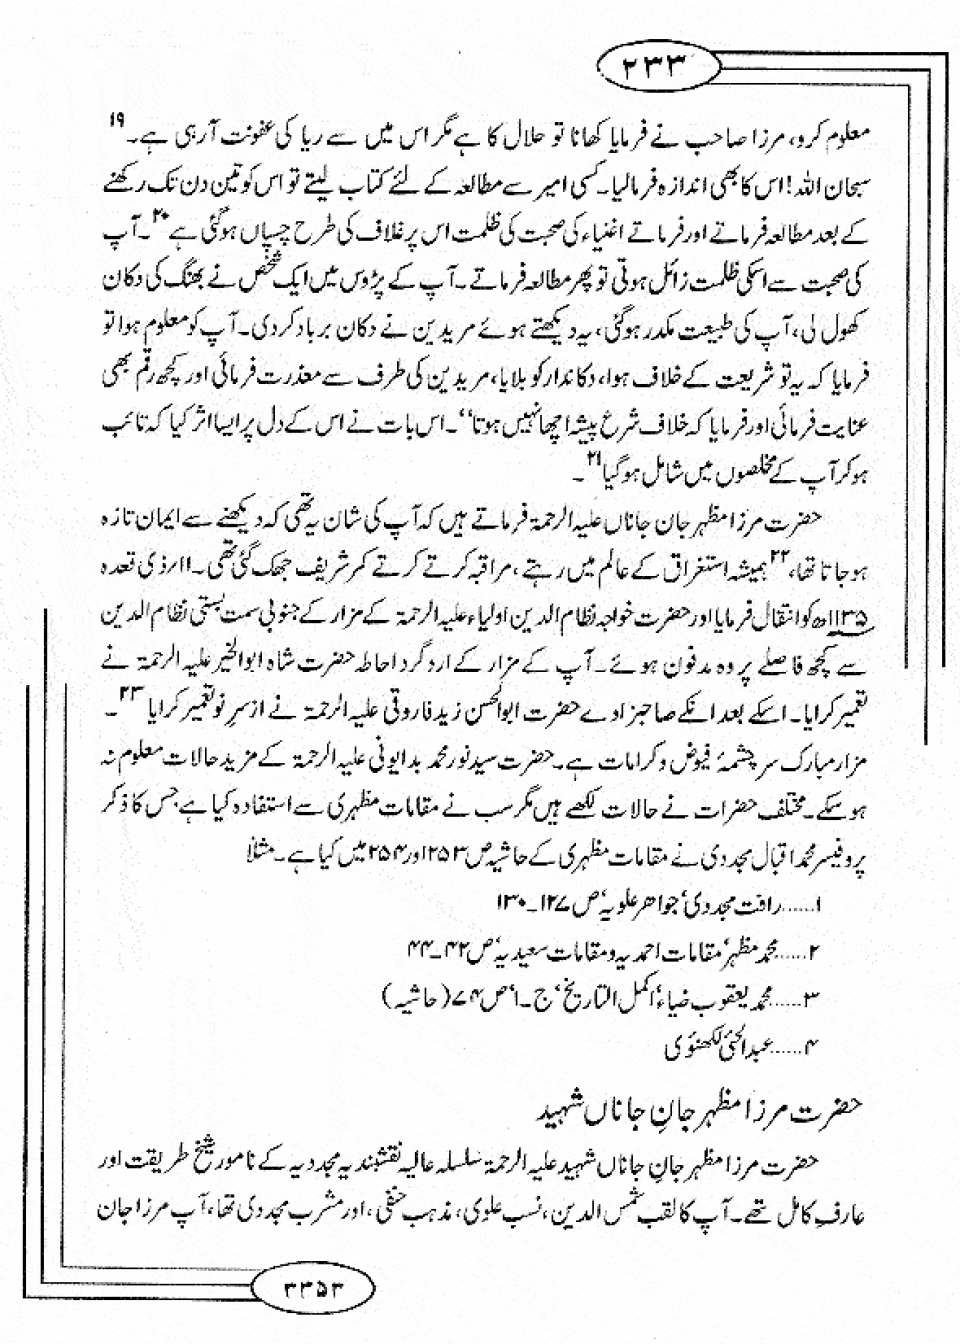 ۲۳۳
معلوم کرو، مرزا صاحب نے فرمایا کھانا تو حلال کا ہے مگر اس میں سے ریا کی عفونت آرہی ہے۔ ۱۹
سبحان اللہ! اس کا بھی اندازہ فرمالیا۔ کسی امیر سے مطالعہ کے لئے کتاب لیتے تو اس کو تین دن تک رکھنے
کے بعد مطالعہ فرماتے اور فرماتے اغنیاء کی صحبت کی ظلمت اس پر غلاف کی طرح چسپاں ہوگئی ہے ۲۰۔ آپ
کی صحبت سے اسکی ظلمت زائل ہوتی تو پھر مطالعہ فرماتے۔ آپ کے پڑوس میں ایک شخص نے بھنگ کی دکان
کھول لی، آپ کی طبیعت مکدر ہوگئی، یہ دیکھتے ہوئے مریدین نے دکان برباد کردی۔ آپ کو معلوم ہوا تو
فرمایا کہ یہ تو شریعت کے خلاف ہوا، دکاندار کو بلایا، مریدین کی طرف سے معذرت فرمائی اور کچھ رقم بھی
عنایت فرمائی اور فرمایا کہ خلاف شرع پیشہ اچھا نہیں ہوتا‘‘۔ اس بات نے اس کے دل پر ایسا اثر کیا کہ تائب
ہوکر آپ کے مخلصوں میں شامل ہوگیا ۲۱۔
حضرت مرزا مظہر جان جاناں علیہ الرحمۃ فرماتے ہیں کہ آپ کی شان یہ تھی کہ دیکھنے سے ایمان تازہ
ہوجاتا تھا، ۲۲ ہمیشہ استغراق کے عالم میں رہتے، مراقبہ کرتے کرتے کمر شریف جھک گئی تھی۔ ۱۱/ ذی قعدہ
۱۱۳۵ھ کو انتقال فرمایا اور حضرت خواجہ نظام الدین اولیاء علیہ الرحمۃ کے مزار کے جنوبی سمت بستی نظام الدین
سے کچھ فاصلے پر وہ مدفون ہوئے۔ آپ کے مزار کے ارد گرد احاطہ حضرت شاہ ابوالخیر علیہ الرحمۃ نے
تعمیر کرایا۔ اسکے بعد انکے صاحبزادے حضرت ابوالحسن زید فاروقی علیہ الرحمۃ نے از سرِ نو تعمیر کرایا ۲۳۔
مزار مبارک سر چشمۂ فیوض و کرامات ہے۔ حضرت سید نور محمد بدایونی علیہ الرحمۃ کے مزید حالات معلوم نہ
ہو سکے۔ مختلف حضرات نے حالات لکھے ہیں مگر سب نے مقامات مظہری سے استفادہ کیا ہے جس کا ذکر
پروفیسر محمد اقبال مجددی نے مقامات مظہری کے حاشیہ ص ۲۵۳ اور ۲۵۴ میں کیا ہے۔ مثلاً
۱......رافت مجددی‘ جواہر علویہ‘ ص ۱۲۷۔۱۳۰
۲......محمد مظہر‘ مقامات احمدیہ و مقامات سعیدیہ‘ ص ۴۲۔۴۴
۳......محمد یعقوب ضیاء‘ اکمل التاریخ‘ ج۔۱‘ ص ۷۴ (حاشیہ)
۴......عبدالحئی لکھنؤی
حضرت مرزا مظہر جانِ جاناں شہید
حضرت مرزا مظہر جانِ جاناں شہید علیہ الرحمۃ سلسلہ عالیہ نقشبندیہ مجددیہ کے نامور شیخ طریقت اور
عارف کامل تھے۔ آپ کا لقب شمس الدین، نسب علوی، مذہب حنفی، اور مشرب مجددی تھا، آپ مرزا جان
۳۳۵۳